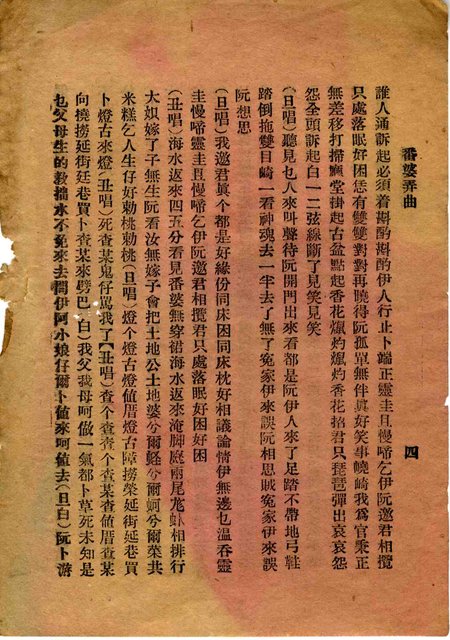 番婆弄曲　　四
誰人通訴起必須着斟酌斟酌伊人行止卜端正靈圭且慢啼乞伊阮邀君相攬
只處落眠好困恁有雙雙對對再曉得阮孤單無伴真好笑事蹺崎我爲官秉正
無差移打掃廳堂掛起古盆點起香花爆灼爆灼香花招君只琵琶彈出哀哀怨
怨全頭訴起白一二弦線斷了見笑見笑
（旦唱）聽見乜人來叫聲待阮開門出來看都是阮伊人來了足踏不帶地弓鞋
踏倒拖雙目崎一看神魂去一半去了無了冤家伊來誤阮相思賊冤家伊來誤
阮想思
（旦唱）我邀君眞个都是好緣份同床困同床枕好相議論情伊無邊乜溫吞靈
圭慢啼靈圭且慢啼乞伊阮邀君相攬君只處落眠好困好困
（丑唱）海水返來四五分看見番婆無穿裙海水返來淹脚庭兩尾龙虾相排行
大姐嫁了子無生阮看汝無嫁子會把土地公土地婆兮爾輕兮爾蚵兮爾榮共
米糕乞人生仔好勅桃勅桃（旦唱）燈个燈古燈値厝燈古障撈榮延街延巷買
卜燈古來燈（丑唱）死查某鬼仔罵我了（丑唱）查个查查个查某查値厝查某
向撓撈延街廷巷買卜查某來劈巴（白）我父我母呵做一氣都卜草死未知是
乜父母生的教擋水不免來去問伊阿小娘仔爾卜値來呵値去（旦白）阮卜游